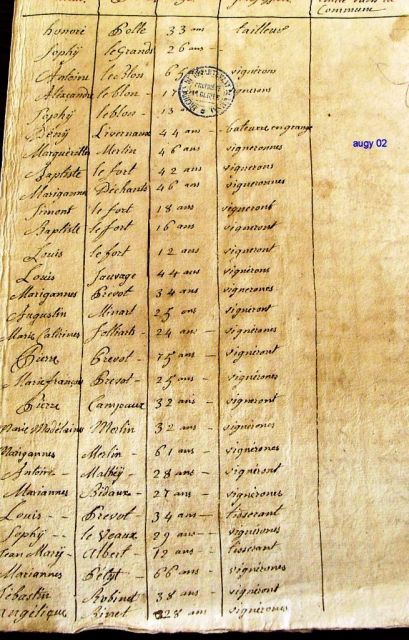 Commune
honoré Polle 33 ans tailleur
Sophÿ le Grand 26 ans
Antoine le blon 65 vignerons
Alexandre le blon
Sophÿ leblon 13
Denÿ Livernaux 44 ans bateure en grange
Marguerittes Merlin 46 ans vigneronnes
Baptiste le fort 42 ans vignerons
Marigannes Dechants 46 ans vigneronnes
Simont le fort 18 ans vigneront
Baptiste le fort 16 ans vigneront
augy 02
Louis le fort 12 ans vigneront
Louis Sauvage 44 ans vignerons
Marigannes Prevot 34 ans vignerones
Augustin Minart 25 ans vigneront
Marie Catrines 24 ans vignerones
Pierre Prevot 75 ans vigneront
Marie françois Prevot 25 ans vignerones
Pierre Campeaux 32 ans vigneront
Marie Madelaine Merlin 32 ans vignerones
Marigannes Merlin 61 ans vignerones
Antoire Mathëÿ 28 ans vigneront
Mariannes Bidaux 27 ans vignerones
Louis Prevot 34 ans tisserant
Sophÿ le Veaux 29 ans vignerones
Jean Marÿ Albert 12 ans tisserant
Mariannes Petit 66 ans vignerones
Sebastin Robinet 38 ans vigneront
angélique Binet 28 ans vignerones